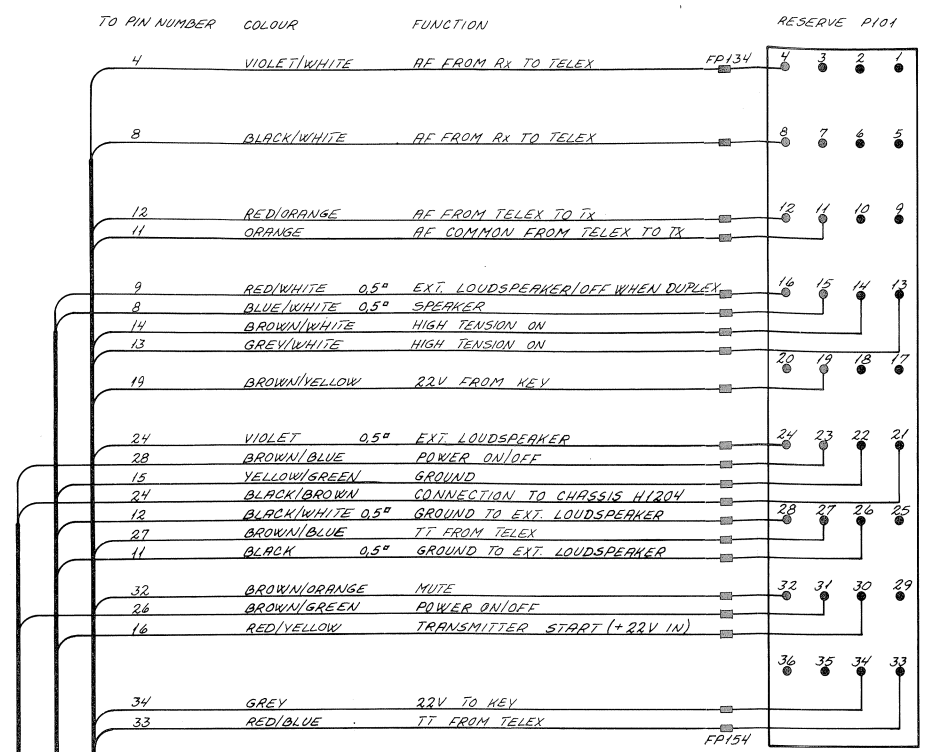 TO PIN NUMBER COLOUR FUNCTION RESERVE P101
4 VIOLET/WHITE AF FROM Rx TO TELEX FP134 4 3 2 1
8 BLACK/WHITE AF FROM Rx TO TELEX 8 7 6 5
12 RED/ORANGE AF FROM TELEX TO Tx 12 11 10 9
11 ORANGE AF COMMON FROM TELEX TO TX
9 RED/WHITE 0,5¤ EXT. LOUDSPEAKER/OFF WHEN DUPLEX 16 15 14 13
8 BLUE/WHITE 0,5¤ SPEAKER
14 BROWN/WHITE HIGH TENSION ON
13 GREY/WHITE HIGH TENSION ON
20 19 18 17
19 BROWN/YELLOW 22V FROM KEY
24 VIOLET 0,5¤ EXT. LOUDSPEAKER 24 23 22 21
28 BROWN/BLUE POWER ON/OFF
15 YELLOW/GREEN GROUND
24 BLACK/BROWN CONNECTION TO CHASSIS H1204
12 BLACK/WHITE 0,5¤ GROUND TO EXT. LOUDSPEAKER 28 27 26 25
27 BROWN/BLUE TT FROM TELEX
11 BLACK 0,5¤ GROUND TO EXT. LOUDSPEAKER
32 BROWN/ORANGE MUTE 32 31 30 29
26 BROWN/GREEN POWER ON/OFF
16 RED/YELLOW TRANSMITTER START (+22V IN)
36 35 34 33
34 GREY 22V TO KEY
33 RED/BLUE TT FROM TELEX
FP154